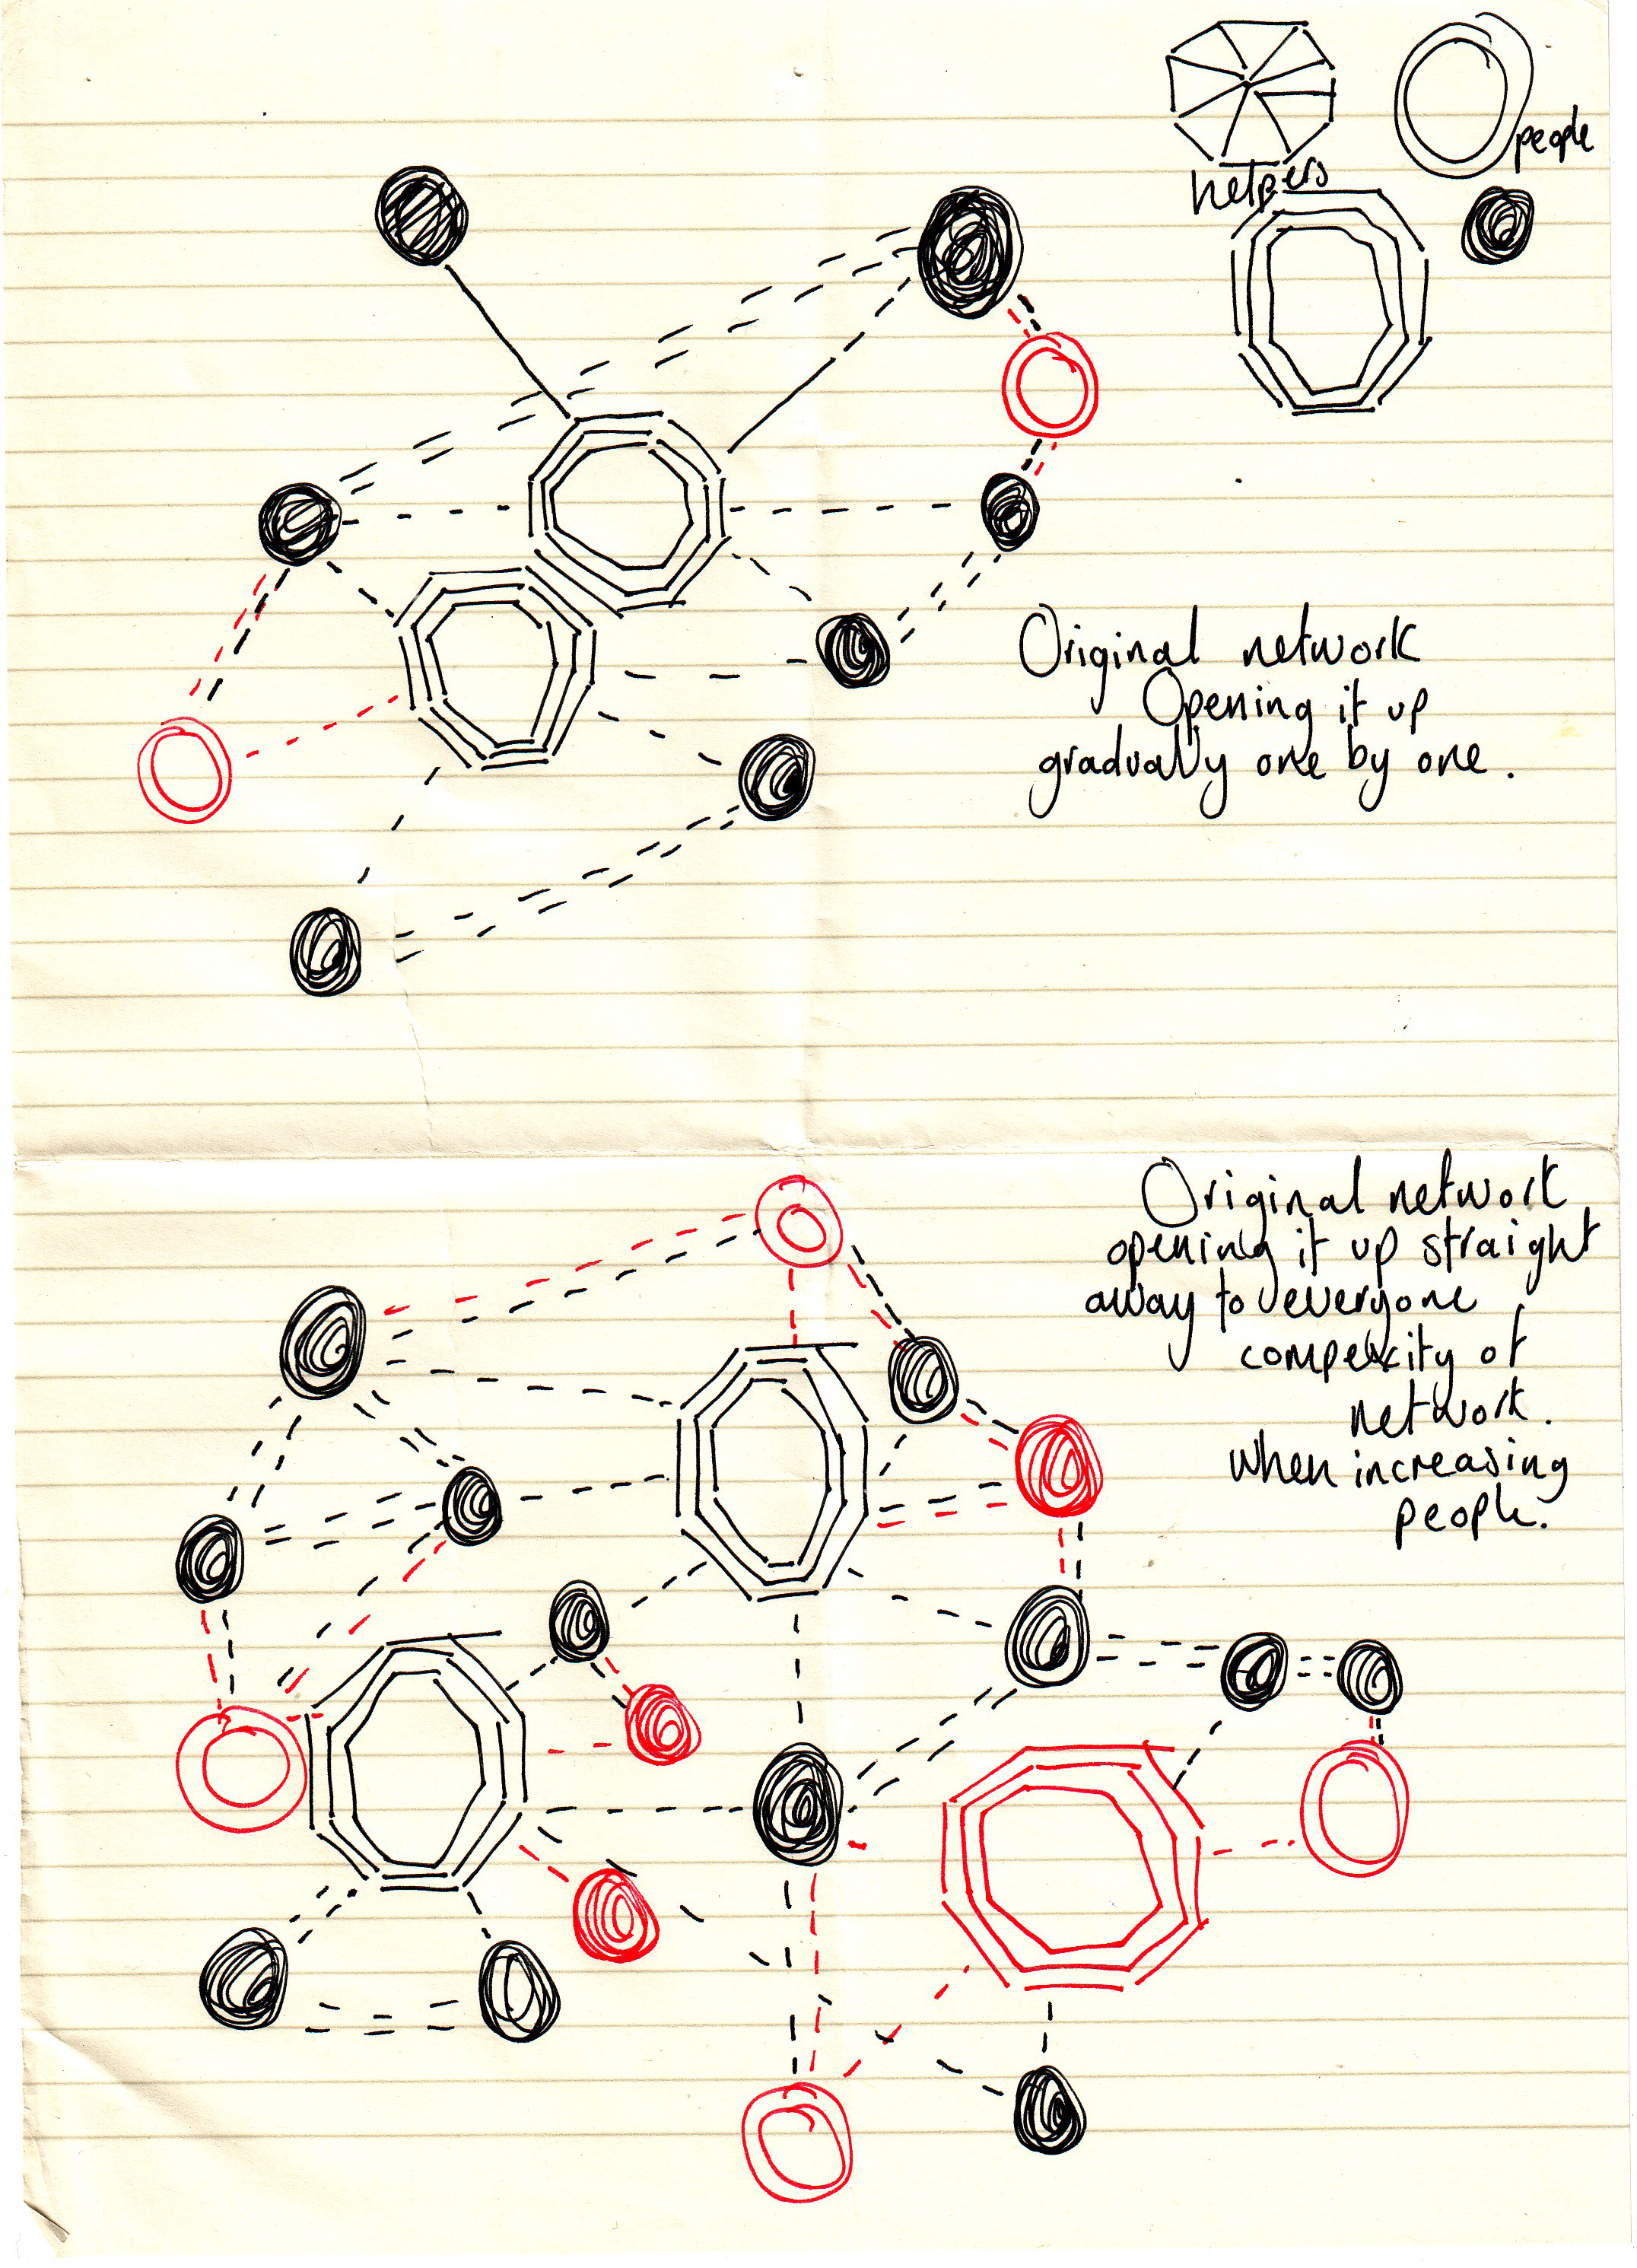 people
helpers
Original network
Opening it up
gradually one by one.
Original network
opening it up straight
away to everyone
compexcity of
network.
when increasing
people.